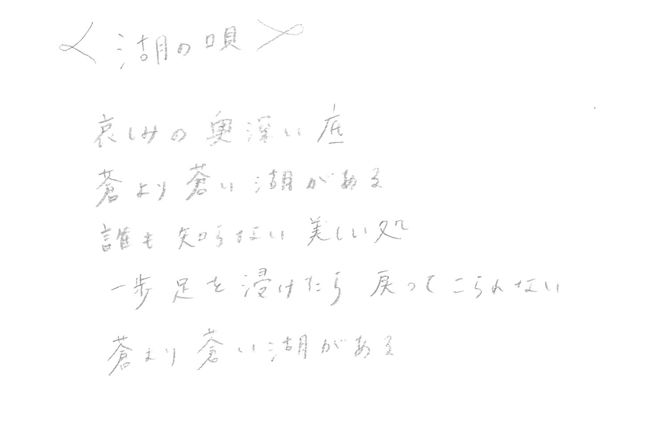 <湖の唄>
哀しみの奥深い底
蒼より蒼い湖がある
誰も知らない美しい処
一歩足を浸けたら戻ってこられない
蒼より蒼い湖がある